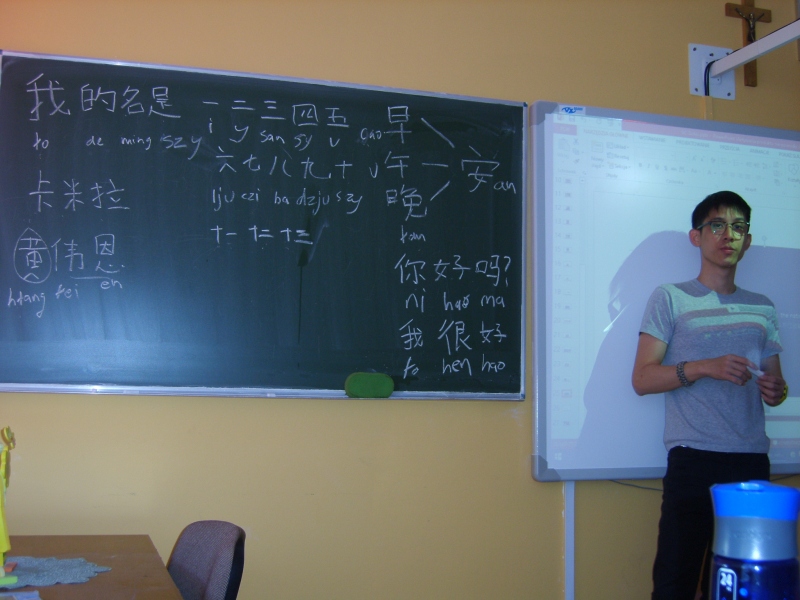 我的名是
ło de ming szy
卡米拉
黄伟恩
hłang łei en
一二三四五
i y san sy u
六七八九十
lju czi ba dzju szy
十一 十二 十三
cao 早
u 午 安 an
晚
łan
你好吗?
ni hao ma
我很好
ło hen hao